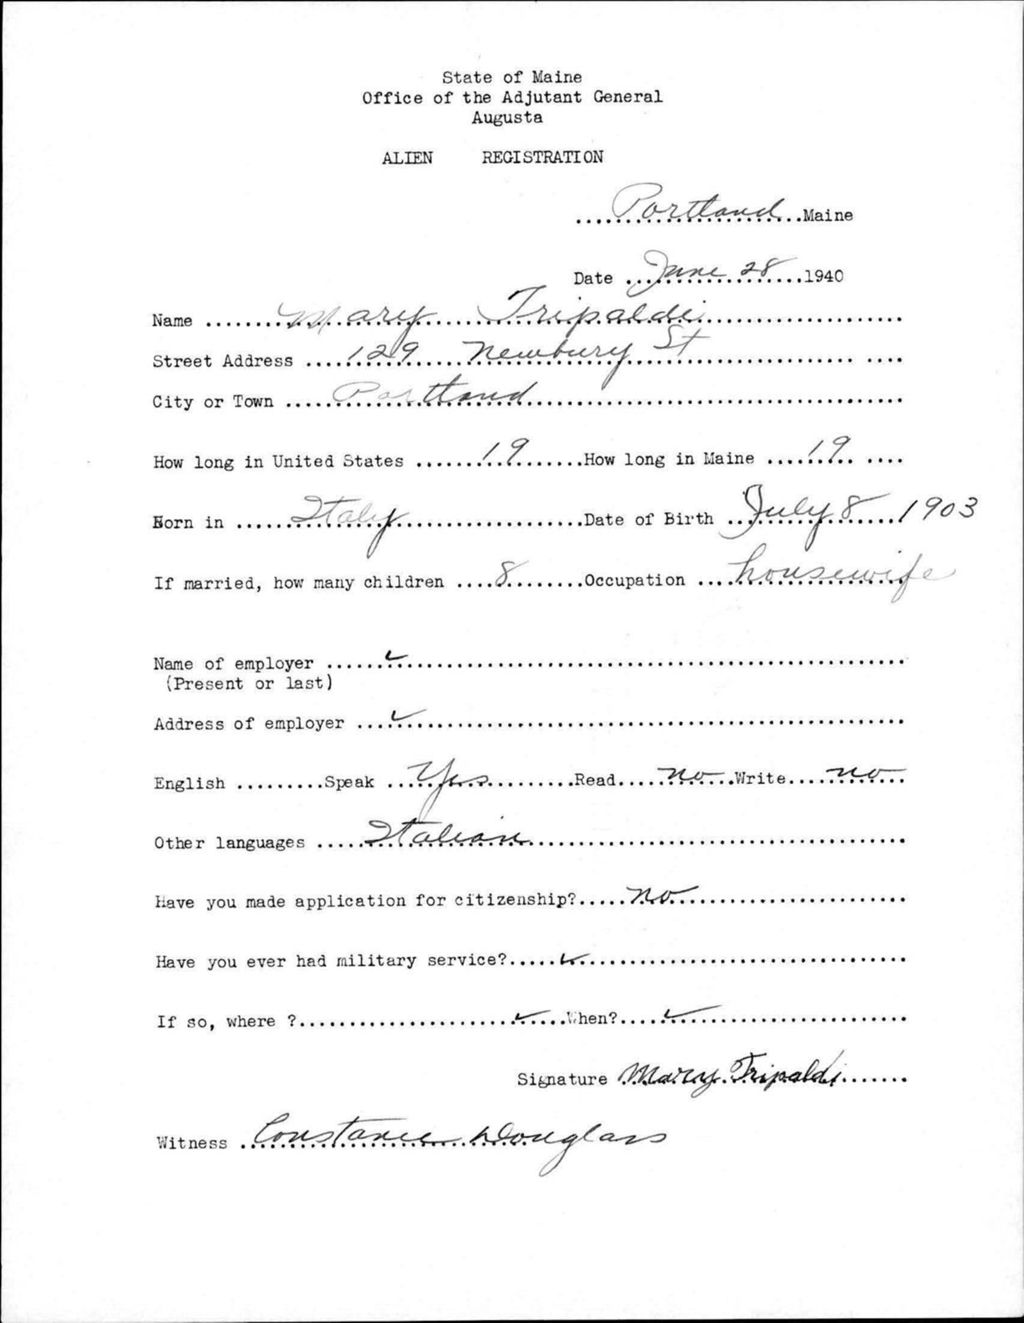 State of Maine
Office of the Adjutant General
Augusta
ALIEN REGISTRATION
....Portland....Maine
Date ...June 28....1940
Name ........Mary Tripaldi....................
Street Address ....129 Newbury St.................... ....
City or Town .....Portland....................
How long in United States .......19.......How long in Maine ....19.. ....
Born in ......Italy....................Date of Birth ..July 8..../1903
If married, how many children ....8........Occupation ....housewife
Name of employer ......✓....................
(Present or last)
Address of employer ....✓....................
English .........Speak .....Yes.........Read.....no...Write.....no...
Other languages .....Italian....................
Have you made application for citizenship?.....no....................
Have you ever had military service?.....✓....................
If so, where ?.....................✓.....When?.....✓....................
Signature Mary Tripaldi.......
Witness .Constance Douglass